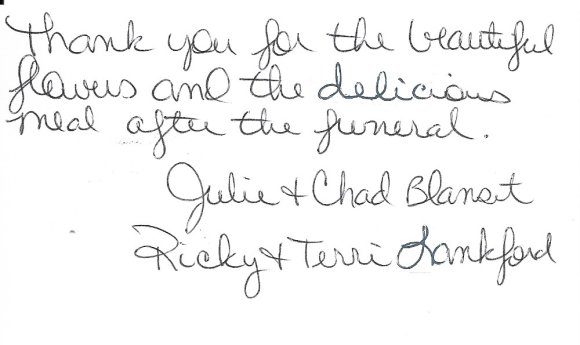 Thank you for the beautiful
flowers and the delicious
meal after the funeral.
Julie + Chad Blansit
Ricky + Terri Lankford